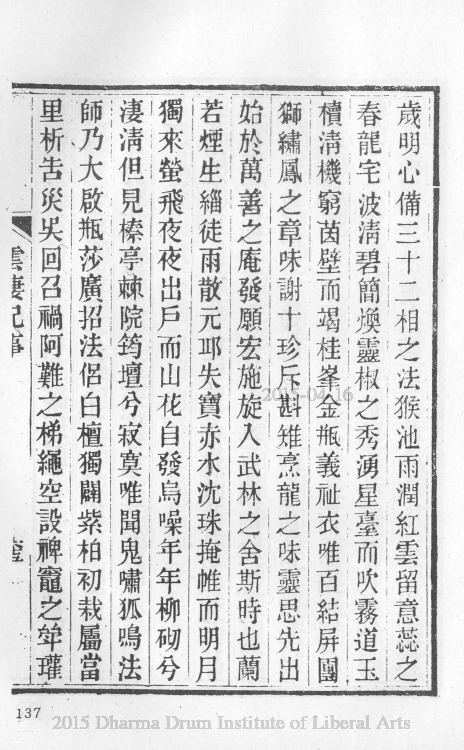 歲明心備三十二相之法猴池雨潤紅雲留意蕊之
春龍宅波淸碧簡煥靈椒之秀湧星臺而吹霧道玉
櫝淸機窮茵壁而竭桂峯金瓶義祉衣唯百結屏團
獅繡鳳之章味謝十珍斥斟雉烹龍之味靈思先出
始於萬善之庵發願宏施旋入武林之舍斯時也蘭
若煙生緇徒雨散元邛失寶赤水沈珠掩帷而明月
獨來螢飛夜夜出戶而山花自發烏噪年年柳砌兮
淒淸但見榛亭棘院筠壇兮寂寞唯聞鬼嘯狐鳴法
師乃大啟瓶莎廣招法侶白檀獨闢紫柏初栽屬當
里析告災吳回召禍阿難之梯繩空設禆竈之斝瓘
雲棲紀事
2015-04-16
137
2015 Dharma Drum Institute of Liberal Arts